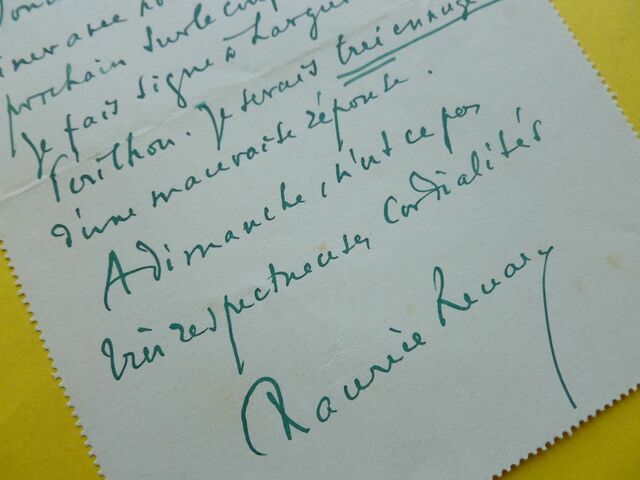 prochain sur le coup
Je fais signe à Largui
Je serais très ennuyé
d'une mauvaise réponse.
A dimanche, n'est ce pas
très respectueuses cordialités
Maurice Renard